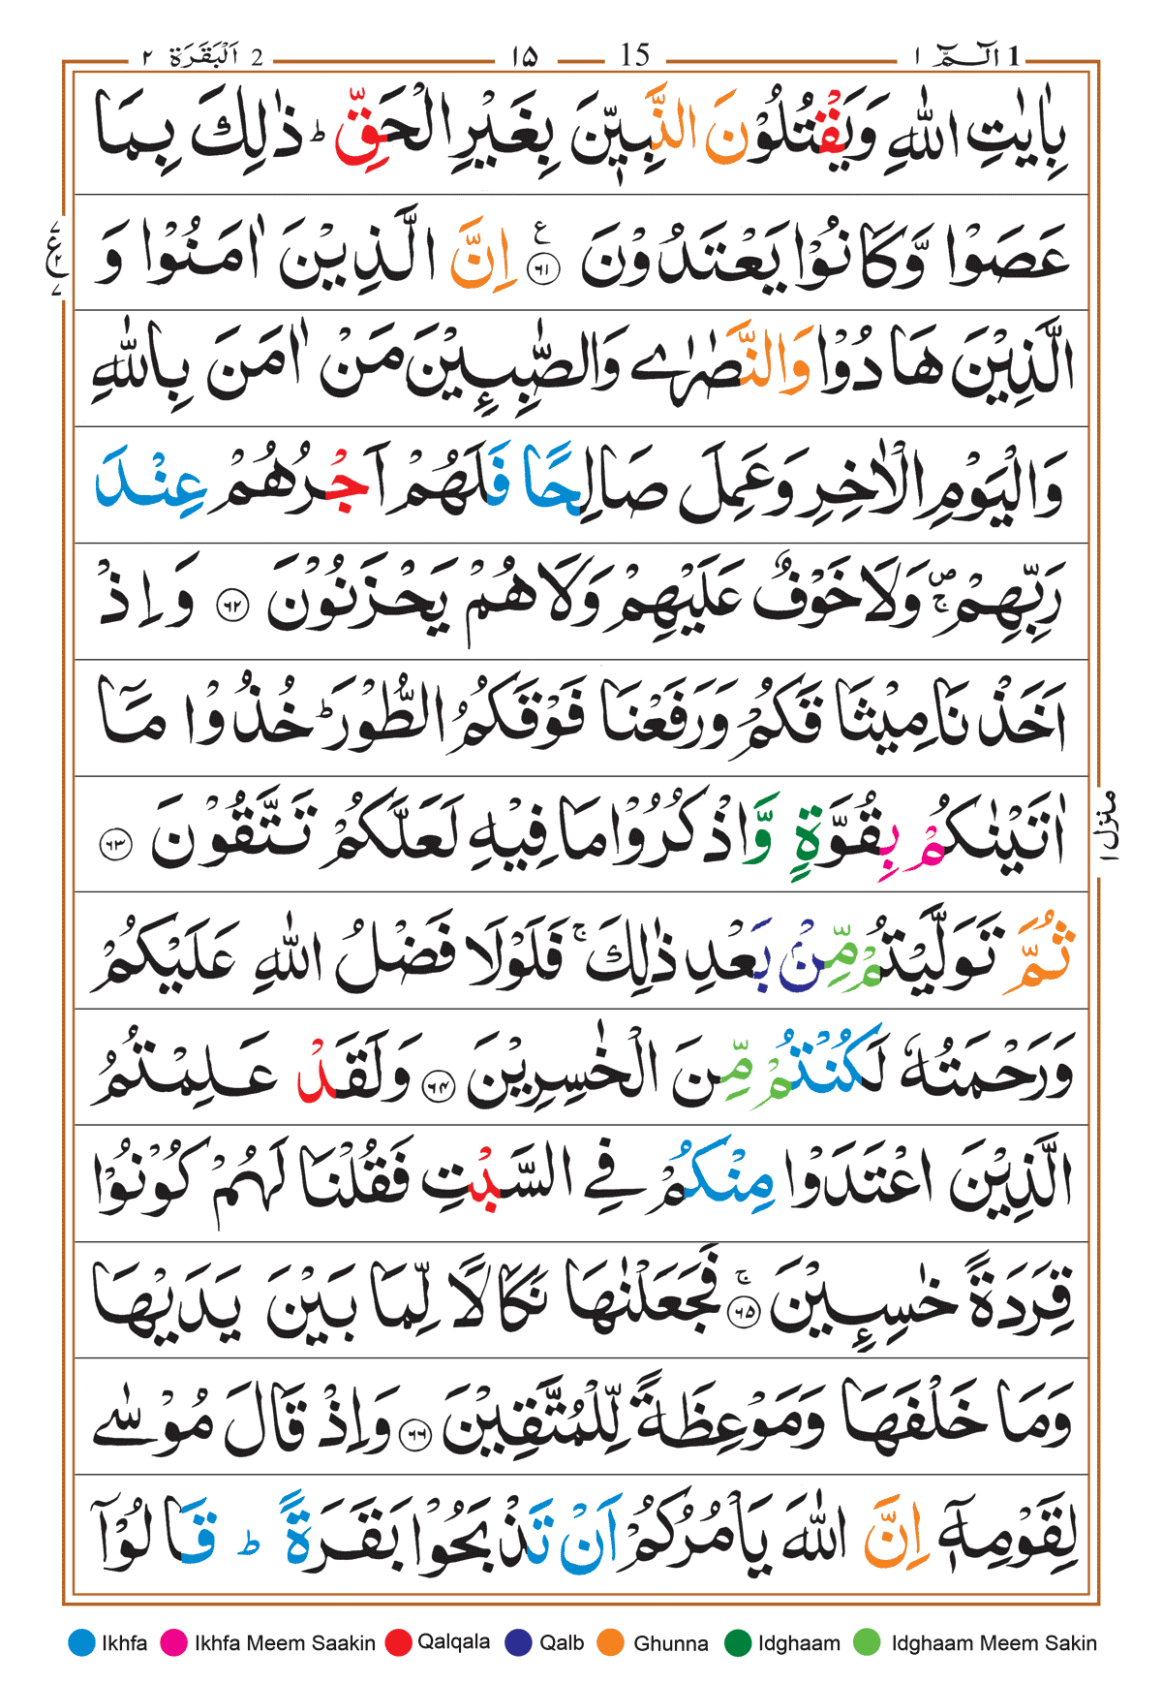 1 الٓـمّٓ ١ 15 ١٥ 2 اَلْبَقَرَة ٢
بِاٰيٰتِ اللّٰهِ وَيَقْتُلُوْنَ النَّبِيّٖنَ بِغَيْرِ الْحَقِّ ؕ ذٰلِكَ بِمَا
عَصَوْا وَّكَانُوْا يَعْتَدُوْنَ ﴿۶۱﴾ ع اِنَّ الَّذِيْنَ اٰمَنُوْا وَ
الَّذِيْنَ هَادُوْا وَالنَّصٰرٰى وَالصّٰبِـِٕيْنَ مَنْ اٰمَنَ بِاللّٰهِ
وَالْيَوْمِ الْاٰخِرِ وَعَمِلَ صَالِحًا فَلَهُمْ اَجْرُهُمْ عِنْدَ
رَبِّهِمْ ۪ۚ وَلَا خَوْفٌ عَلَيْهِمْ وَلَا هُمْ يَحْزَنُوْنَ ﴿۶۲﴾ وَاِذْ
اَخَذْنَا مِيْثَاقَكُمْ وَرَفَعْنَا فَوْقَكُمُ الطُّوْرَ ؕ خُذُوْا مَآ
اٰتَيْنٰكُمْ بِقُوَّةٍ وَّاذْكُرُوْا مَا فِيْهِ لَعَلَّكُمْ تَتَّقُوْنَ ﴿۶۳﴾
ثُمَّ تَوَلَّيْتُمْ مِّنْۢ بَعْدِ ذٰلِكَ ۚ فَلَوْلَا فَضْلُ اللّٰهِ عَلَيْكُمْ
وَرَحْمَتُهٗ لَكُنْتُمْ مِّنَ الْخٰسِرِيْنَ ﴿۶۴﴾ وَلَقَدْ عَلِمْتُمُ
الَّذِيْنَ اعْتَدَوْا مِنْكُمْ فِى السَّبْتِ فَقُلْنَا لَهُمْ كُوْنُوْا
قِرَدَةً خٰسِـِٕيْنَ ﴿۶۵﴾ۚ فَجَعَلْنٰهَا نَكَالًا لِّمَا بَيْنَ يَدَيْهَا
وَمَا خَلْفَهَا وَمَوْعِظَةً لِّلْمُتَّقِيْنَ ﴿۶۶﴾ وَاِذْ قَالَ مُوْسٰى
لِقَوْمِهٖٓ اِنَّ اللّٰهَ يَاْمُرُكُمْ اَنْ تَذْبَحُوْا بَقَرَةً ؕ قَالُوْٓا
منزل ١
Ikhfa Ikhfa Meem Saakin Qalqala Qalb Ghunna Idghaam Idghaam Meem Sakin